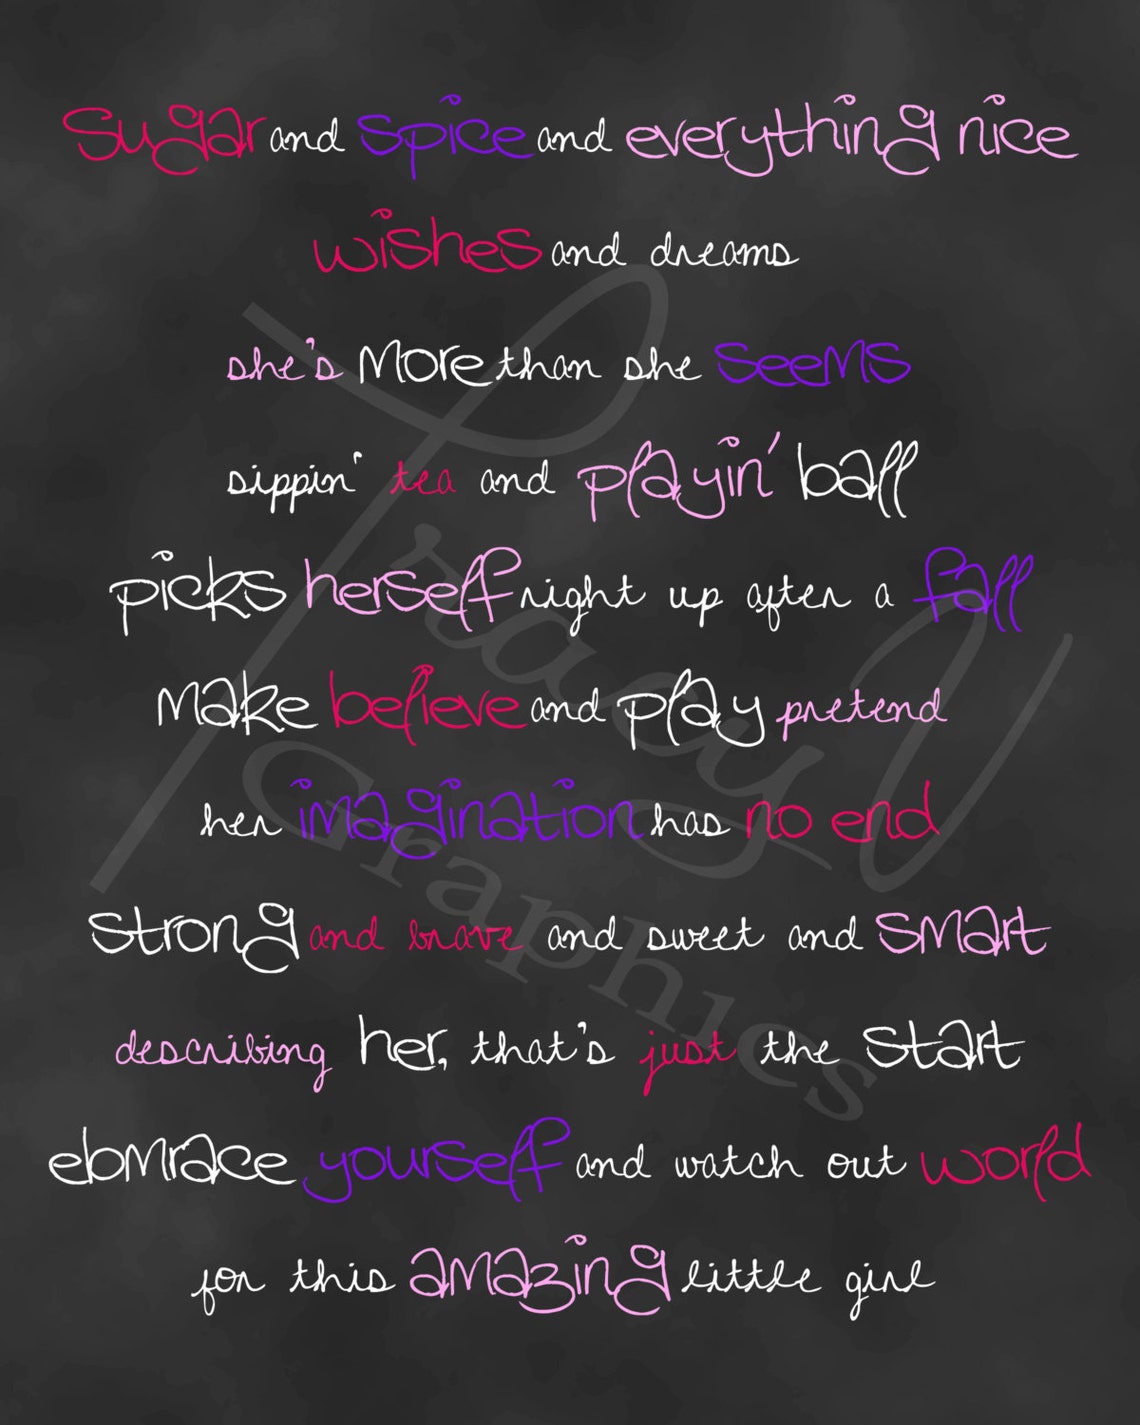 Sugar and spice and everything nice
wishes and dreams
she's more than she seems
sippin' tea and playin' ball
picks herself right up after a fall
make believe and play pretend
her imagination has no end
strong and brave and sweet and smart
describing her, that's just the start
ebmrace yourself and watch out world
for this amazing little girl
TraceyV
Graphics